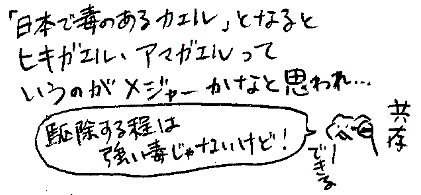 「日本で毒のあるカエル」となると
ヒキガエル・アマガエルって
いうのがメジャーかなと思われ…
駆除する程は
強い毒じゃないけど!
共存
できる